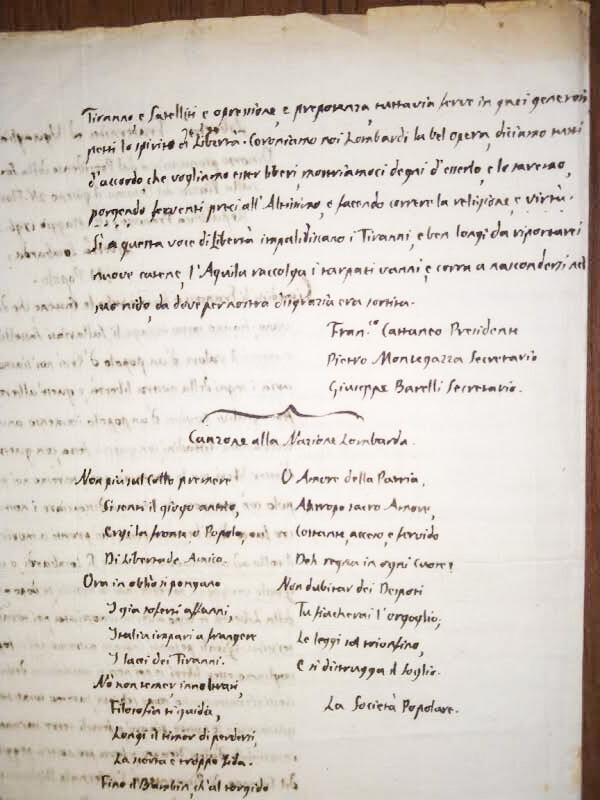 Tiranno e Satelliti e opressione, e prepotenza, tuttavia ferve in quei generosi
petti lo spirito di Libertà. Coroniamo noi Lombardi la bel opera, diciamo tutti
d'accordo, che vogliamo esser liberi, mostriamoci degni d'esserlo, e lo saremo,
porgendo ferventi preci all'Altissimo, e facendo correre la religione, e virtù.
Si a questa voce di Libertà impalidiscano i Tiranni, e ben longi da riportarci
nuove catene, l'Aquila raccolga i tarpati vanni, e corra a nascondersi nel
suo nido, da dove per nostra disgrazia era sortita.
Fran.co Cattaneo Presidente
Pietro Montegazza Secretario
Giuseppe Barelli Secretario.
Canzone alla Nazione Lombarda.
Non più sul Collo premere
Si senti il giogo antico,
Ergi la fronte o Popolo,
Di Libertade Amico.
Ora in oblio si pongano
I gia soferti affanni,
Italia impari a frangere
I lacci dei Tiranni.
Nò non temer, innoltrati,
Filosofia ti guida,
Longi il timor di perderti,
La scorta è troppo fida.
Fino il Bambin, ch'al torgido
O Amore della Patria,
sacro Amore,
Costante, acceso, e fervido
Deh regna in ogni Cuore!
Non dubitar dei Despoti
Tu fiacherai l'orgoglio,
Le leggi sol trionfino,
E si distrugga il soglio.
La Società Popolare.